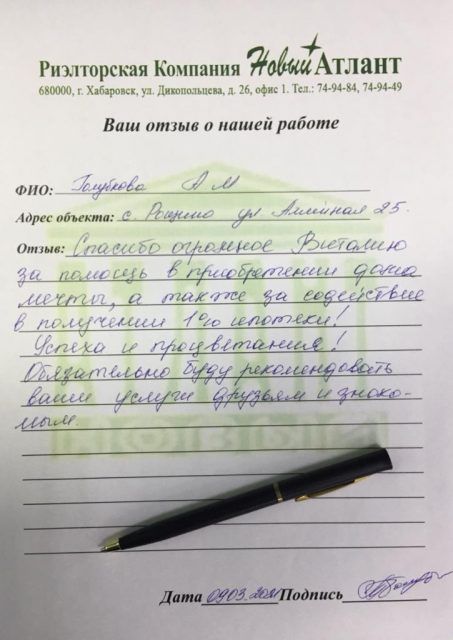 Риэлторская Компания Новый Атлант
680000, г. Хабаровск, ул. Дикопольцева, д. 26, офис 1. Тел.: 74-94-84, 74-94-49
Ваш отзыв о нашей работе
ФИО: Голубкова А М
Адрес объекта: с Рощино ул Аллейная 25.
Отзыв: Спасибо огромное Виталию
за помощь в приобретении дома
мечты, а также за содействие
в получении 1% ипотеки!
Успеха и процветания!
Обязательно буду рекомендовать
ваши услуги друзьям и знако-
мым.
Дата 09.03.2021 Подпись